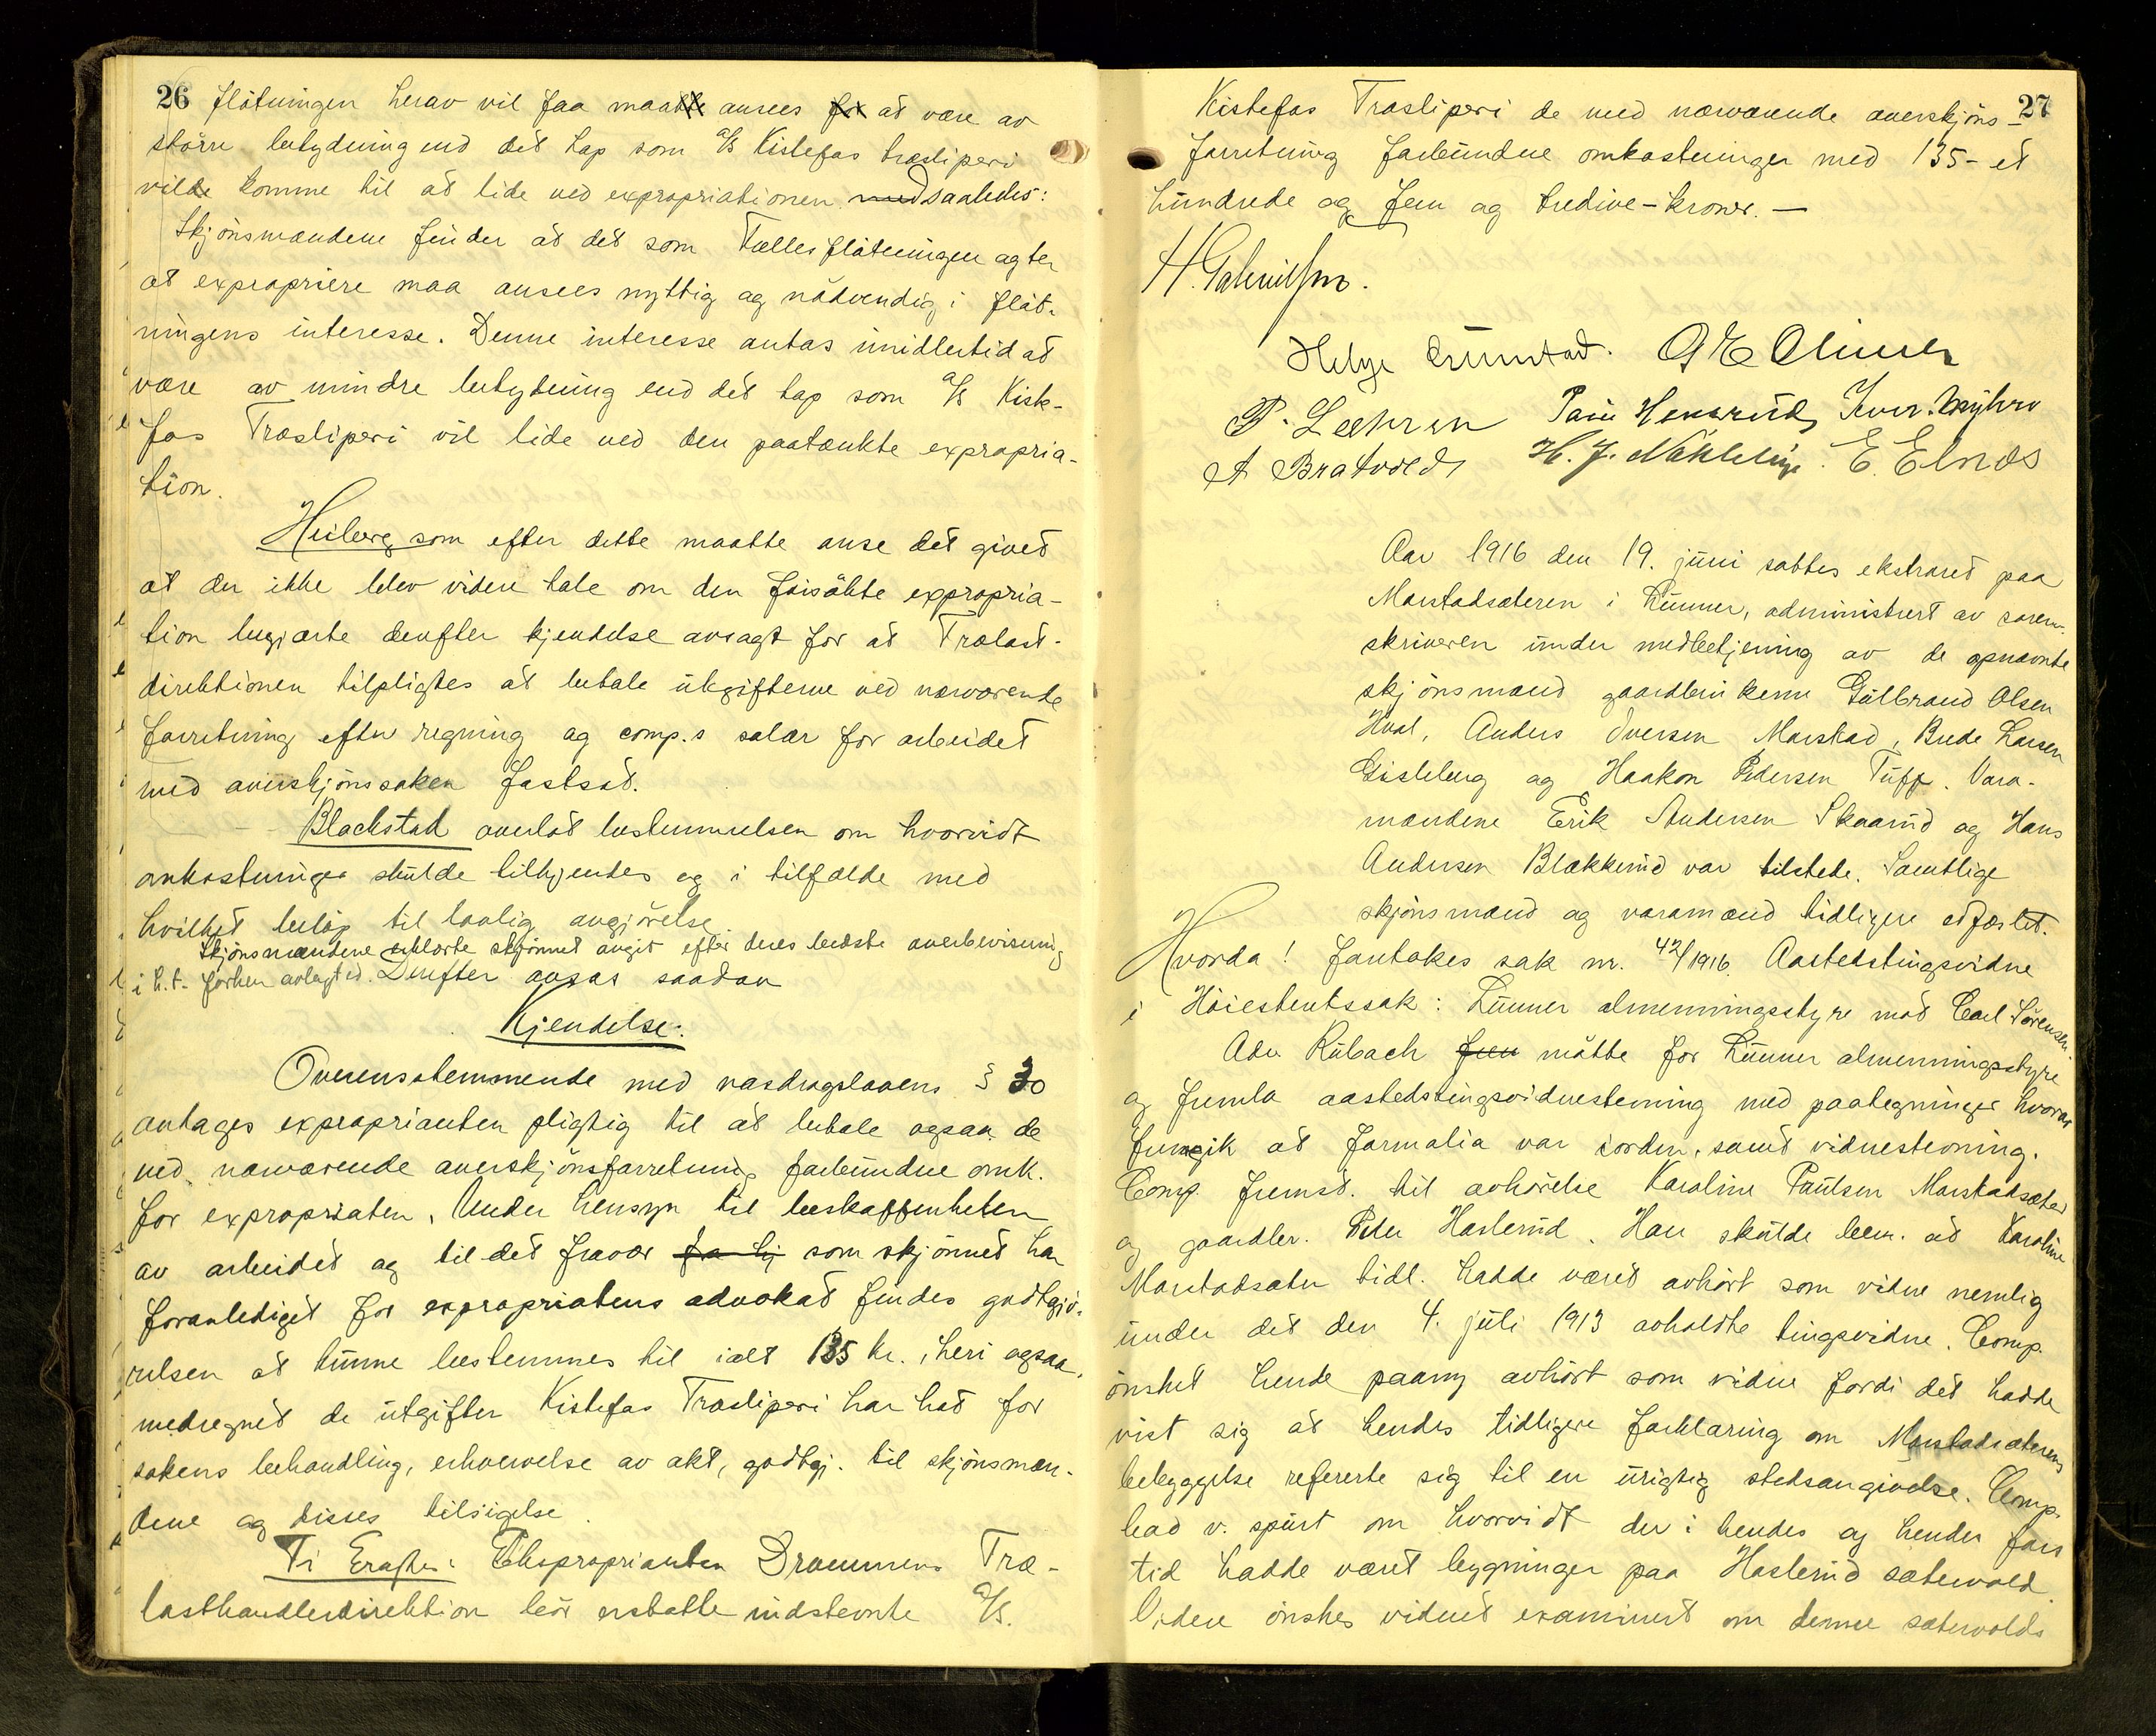 26 flötningen herav vil faa maatte ansees for at være av
större betydning end det tap som A/S Kistefos træsliperi
vilde komme til at lide ved expropriationen med saaledes:
Skjönsmændene finder at det som Fællesflötningen agter
at expropriere maa ansees nyttig og nödvendig i flöt-
ningens interesse. Denne interesse antas imidlertid at
være av mindre betydning end det tap som A/S Kiste-
fos Træsliperi vil lide ved den paatænkte expropria-
tion.
Heiberg som efter dette maatte anse det givet
at der ikke blev videre tale om den forsökte expropria-
tion begjærte derefter kjendelse avsagt for at Trælast-
direktionen tilpligtes at betale utgifterne ved nærværende
forretning efter regning og comp.s salær for arbeidet
med overskjönssaken fastsat.
Blackstad overlot bestemmelsen om hvorvidt
omkostninger skulde tilkjendes og i tilfælde med
hvilket belöp til lovlig avgjörelse.
Skjönsmændene erklærte skjönnet avgit efter deres bedste overbevisning
i h.t. forhen avlagt ed. Derefter avgas saadan
Kjendelse:
Overensstemmende med vasdragslovens § 30
antages exproprianten pligtig til at betale ogsaa de
ved nærværende overskjönsforretning forbundne omk.
for expropriaten. Under hensyn til beskaffenheten
av arbeidet og til det fravær som skjönnet har
foranlediget for expropriatens advokat findes godtgjö-
relsen at kunne bestemmes til ialt 135 kr., heri ogsaa
medregnet de utgifter Kistefos Træsliperi har hat for
sakens behandling, erhvervelse av akt, godtgj. til skjönsmæn-
dene og disses tilsigelse.
Ti Eragtes: Eksproprianten Drammens Træ-
lasthandlerdirektion bör erstatte indstevnte A/S.
27
Kistefos Træsliperi de med nærværende overskjöns-
forretning forbundne omkostninger med 135 - et
hundrede og fem og tredive - kroner. —
Helge
P. Læhren Paul Hensrud Iver Myhre
A Bratvold H. J. E. Elnæs
Aar 1916 den 19. juni sattes ekstraret paa
Morstadsæteren i Lunner, administrert av soren-
skriveren under medbetjening av de opnævnte
skjönsmænd gaardbrukerne Gulbrand Olsen
Hval, Anders Iversen Morstad, Brede Larsen
Gisleberg og Haakon Pedersen Tuff. Vara-
mændene Erik Andersen Skaarud og Hans
Andersen Blækkerud var tilstede. Samtlige
skjönsmænd og varamænd tidligere edfæstet.
Hvorda! foretokes sak nr. 42/1916. Aastedstingsvidne
i Höiesteretssak: Lunner almenningsstyre mot Carl Sörensen.
Adv. Rubach frem mötte for Lunner almenningsstyre
og fremla aastedstingsvidnestevning med paategninger hvorav
fremgik at formalia var iorden, samt vidnestevning.
Comp. fremst. til avhörelse Karoline Paulsen Morstadsæter
og gaardbr. Peder Haslerud. Han skulde bem. at Karoline
Morstadsæter tidl. hadde været avhört som vidne nemlig
under det den 4. juli 1913 avholdte tingsvidne. Comp.
önsket hende paany avhört som vidne fordi det hadde
vist sig at hendes tidligere forklaring om Morstadsæterens
bebyggelse refererte sig til en urigtig stedsangivelse. Comp.
bad v. spurt om hvorvidt der i hendes og hendes fars
tid hadde været bygninger paa Haslerud sætervold.
Videre önskes vidnet examinert om denne sætervolds